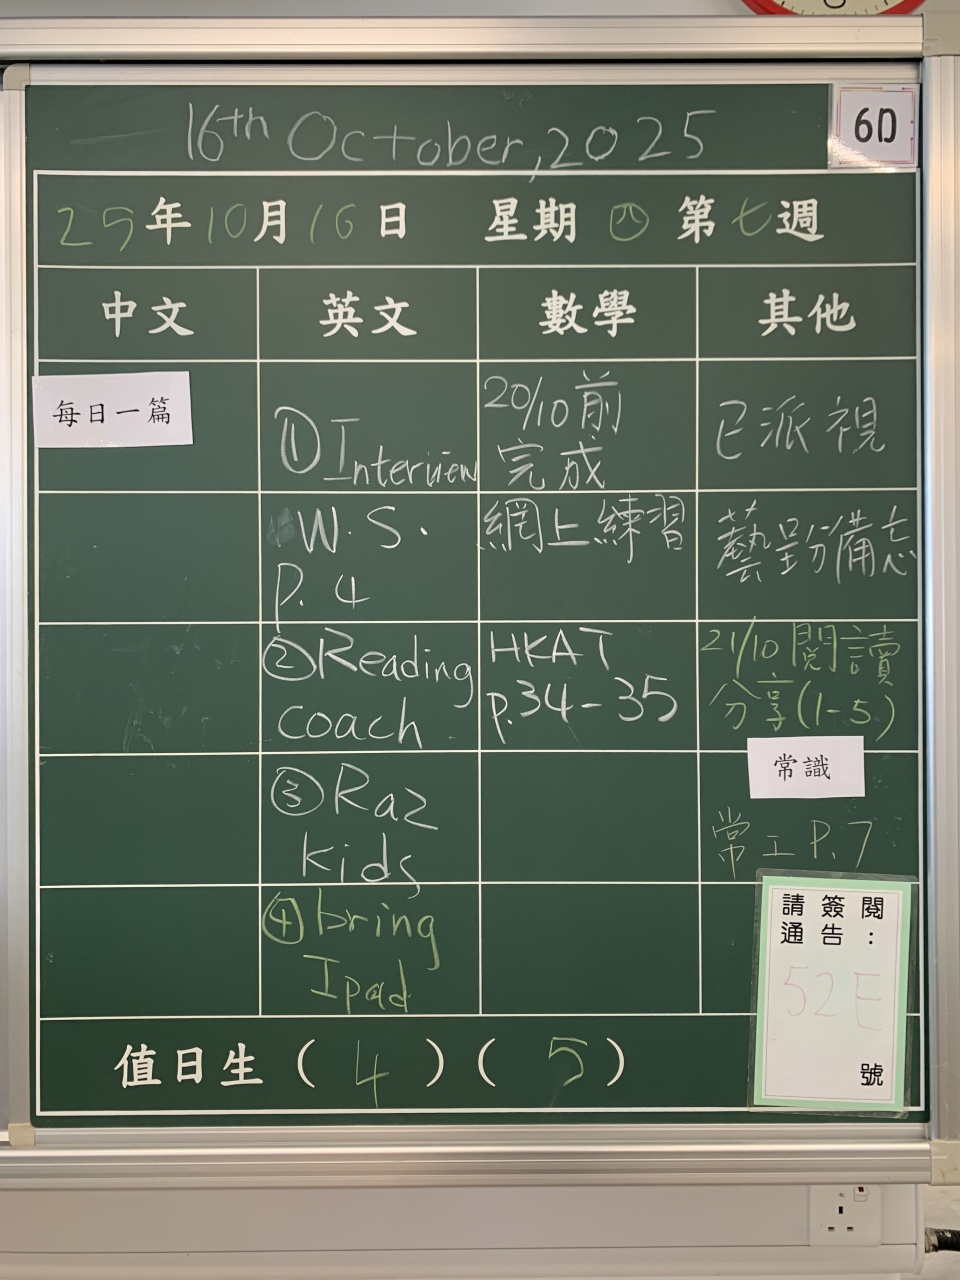 16th October, 2025
6D
25年10月16日 星期四 第七週
中文 英文 數學 其他
每日一篇
① Interview
W.S.
P.4
② Reading
coach
③ Raz
kids
④ bring
Ipad
20/10前
完成
網上練習
HKAT
p.34-35
已派視
藝呈分備忘
21/10 閱讀
分享(1-5)
常識
常工P.7
請簽閱
通告:
52E
號
值日生(4)(5)